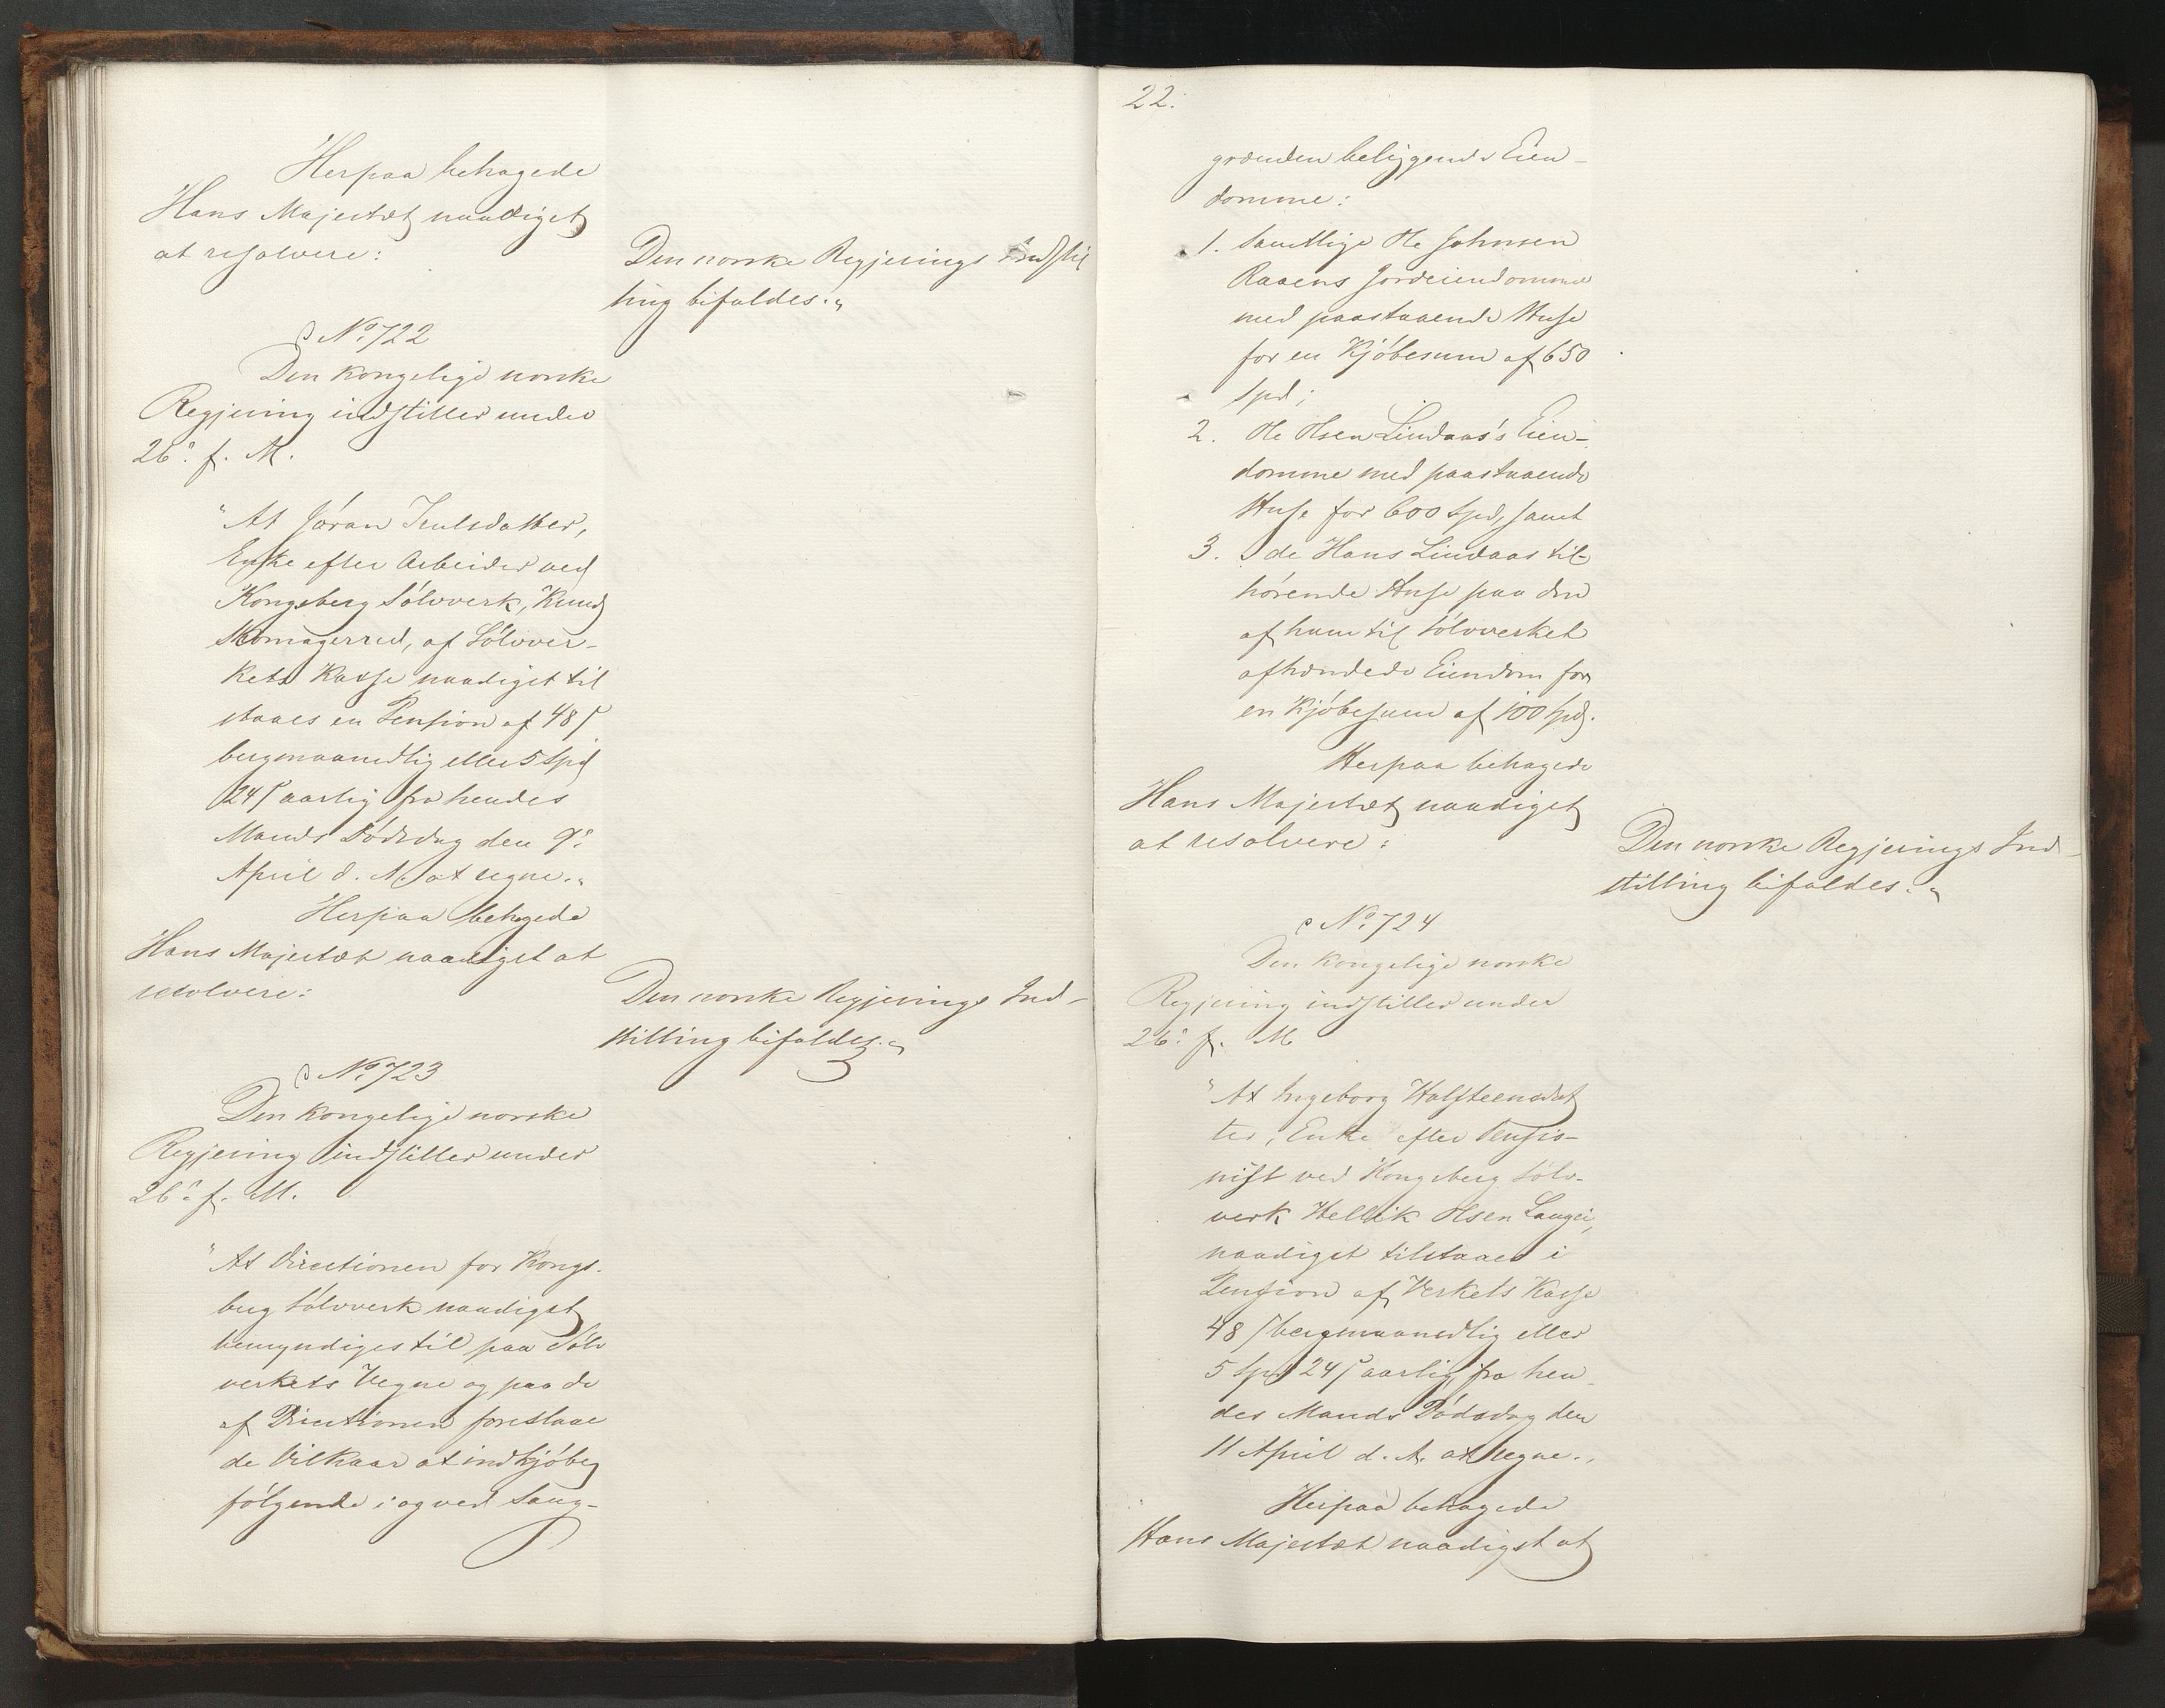 Herpaa behagede
Hans Majestæt naadigst
at resolvere:
Den norske Regjerings Indstil
ling bifaldes.„
No 722
Den kongelige norske
Regjering indstiller under
26de f. M.
"At Jøran Trulsdatter,
Enke efter Arbeider ved
Kongsberg Sølvverk, Knud
Skomagerrud, af Sølvver-
kets Kasse naadigst til
staaes en Pension af 48 ſ
bergmaanedlig eller 5 Spd
24 ſ aarlig fra hendes
Mands Dødsdag den 9de
April d. A. at regne.„
Herpaa behagede
Hans Majestæt naadigst at
resolvere:
Den norske Regjerings Ind-
stilling bifaldes.„
No 723
Den kongelige norske
Regjering indstiller under
26de f. M.
"At Directionen for Kongs-
berg Sølvverk naadigst
bemyndiges til paa Sølv
verkets Vegne og paa de
af Directionen foreslaae
de Vilkaar at indkjøbe
følgende i og ved Saug-
22.
grænden beliggende Eien-
domme:
1. Samtlige Ole Johnsen
Raaens Jordeiendomme
med paastaaende Huse
for en Kjøbesum af 650
Spd;
2. Ole Olsen Lindaas's Eien-
domme med paastaaende
Huse for 600 Spd, samt
3. de Hans Lindaas til-
hørende Huse paa den
af ham til Sølvverket
afhændede Eiendom for
en Kjøbesum af 100 Spd.
Herpaa behagede
Hans Majestæt naadigst
at resolvere:
Den norske Regjerings Ind-
stilling bifaldes.„
No 724
Den kongelige norske
Regjering indstiller under
26de f. M
"At Ingeborg Halsteensdat
ter, Enke efter Pensio-
nist ved Kongsberg Sølv-
verk Hellik Olsen
naadigst tilstaaes i
Pension af Verkets Kasse
48 ſ bergmaanedlig eller
5 Spd 24 ſ aarlig, fra hen
des Mands Dødsdag den
11 April d. A. at regne.„
Herpaa behagede
Hans Majestæt naadigst at